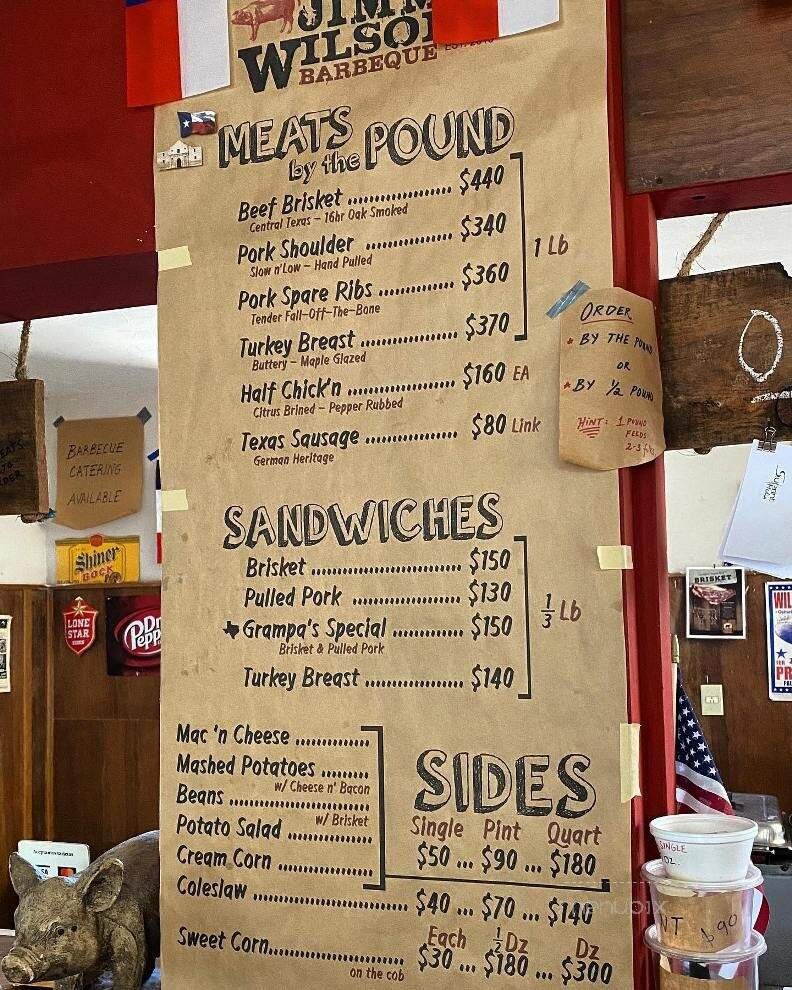 WILSON
BARBEQUE
MEATS
by the POUND
Beef Brisket ................ $440
Central Texas – 16hr Oak Smoked
Pork Shoulder ............. $340
Slow n'Low – Hand Pulled
Pork Spare Ribs ........... $360
Tender Fall-Off-The-Bone
Turkey Breast .............. $370
Buttery – Maple Glazed
1 Lb
Half Chick'n ................ $160 EA
Citrus Brined – Pepper Rubbed
Texas Sausage .............. $80 Link
German Heritage
ORDER
* BY THE POUND
OR
* BY ½ POUND
HINT: 1 POUND
FEEDS
2-3
BARBECUE
CATERING
AVAILABLE
Shiner
BOCK
LONE
STAR
Dr
Pepp
BRISKET
SANDWICHES
Brisket ...................... $150
Pulled Pork ................ $130
Grampa's Special .......... $150
Brisket & Pulled Pork
Turkey Breast .............. $140
⅓ Lb
SIDES
Mac 'n Cheese ............
Mashed Potatoes ........
w/ Cheese n' Bacon
Beans .....................
w/ Brisket
Potato Salad .............
Cream Corn ..............
Single Pint Quart
$50 ... $90 ... $180
Coleslaw ........................ $40 ... $70 ... $140
Each ½ Dz Dz
Sweet Corn..................... $30 ... $180 ... $300
on the cob
SINGLE
OZ.
NT $90
menubix